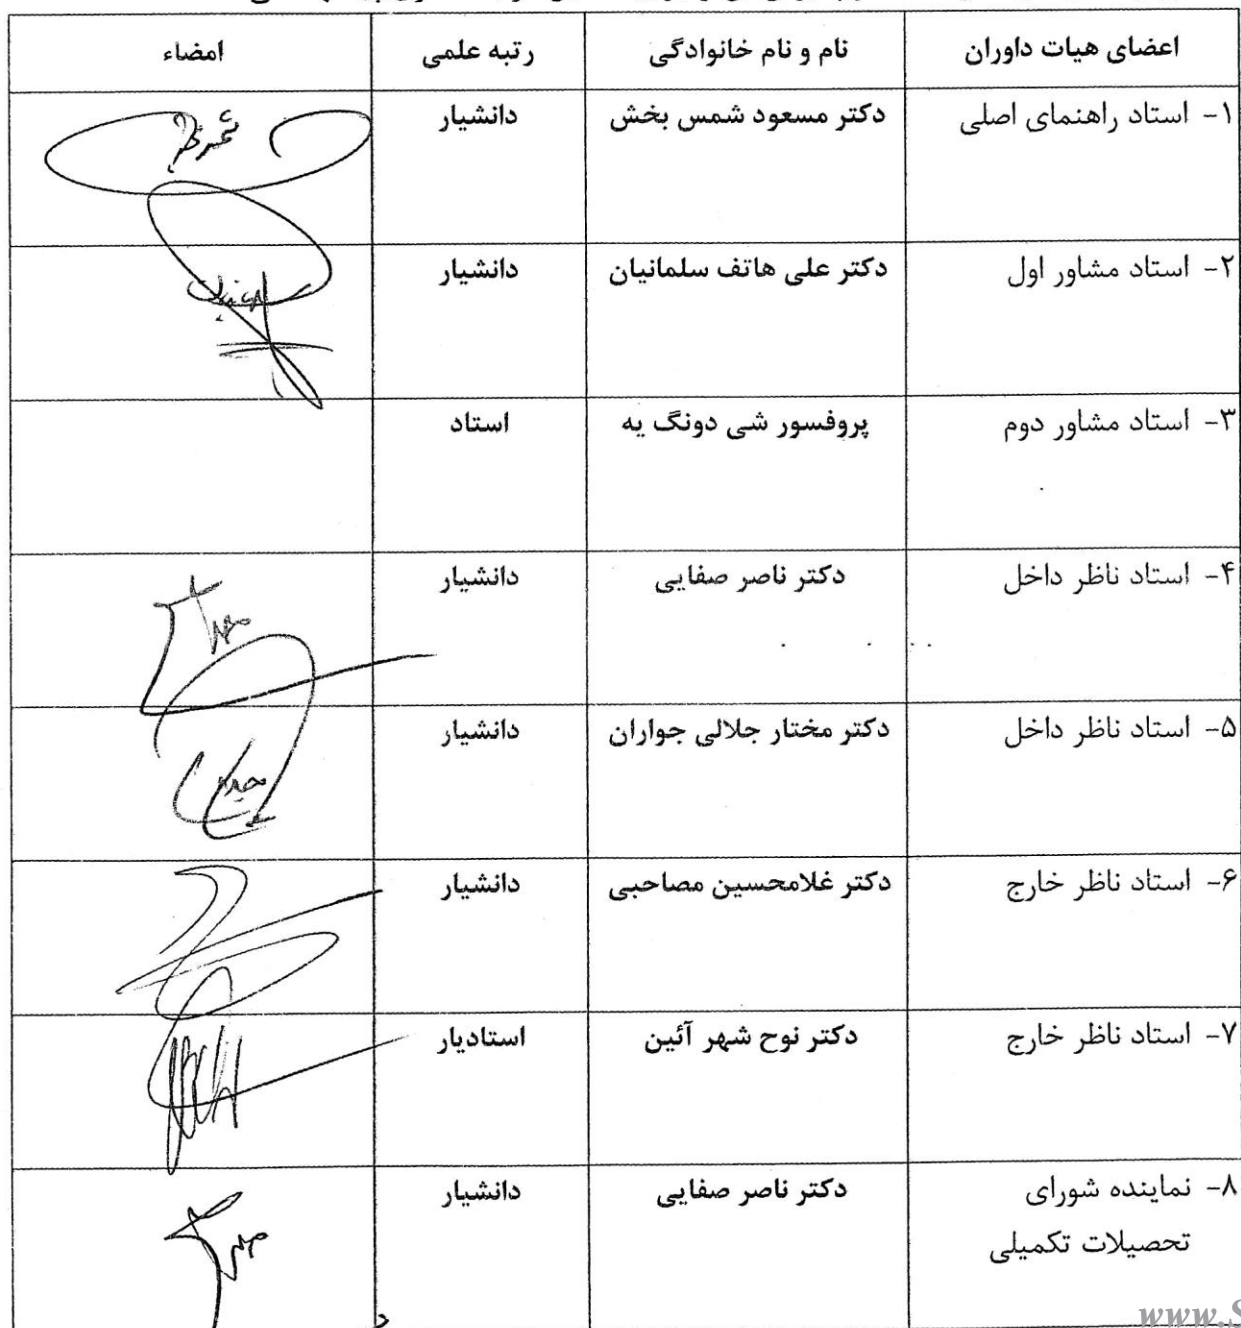 اعضای هیات داوران نام و نام خانوادگی رتبه علمی امضاء
۱- استاد راهنمای اصلی دکتر مسعود شمس بخش دانشیار
۲- استاد مشاور اول دکتر علی هاتف سلمانیان دانشیار
۳- استاد مشاور دوم پروفسور شی دونگ یه استاد
۴- استاد ناظر داخل دکتر ناصر صفایی دانشیار
۵- استاد ناظر داخل دکتر مختار جلالی جواران دانشیار
۶- استاد ناظر خارج دکتر غلامحسین مصاحبی دانشیار
۷- استاد ناظر خارج دکتر نوح شهر آئین استادیار
۸- نماینده شورای دکتر ناصر صفایی دانشیار
تحصیلات تکمیلی
www.S